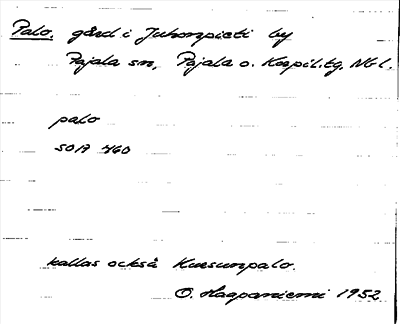 Palo, gård i Juhonpieti by
Pajala sn, Pajala o. Korpil. tg. Nbl.
palo
SOA 460
kallas också Kuusunpalo.
O. Haapaniemi 1952